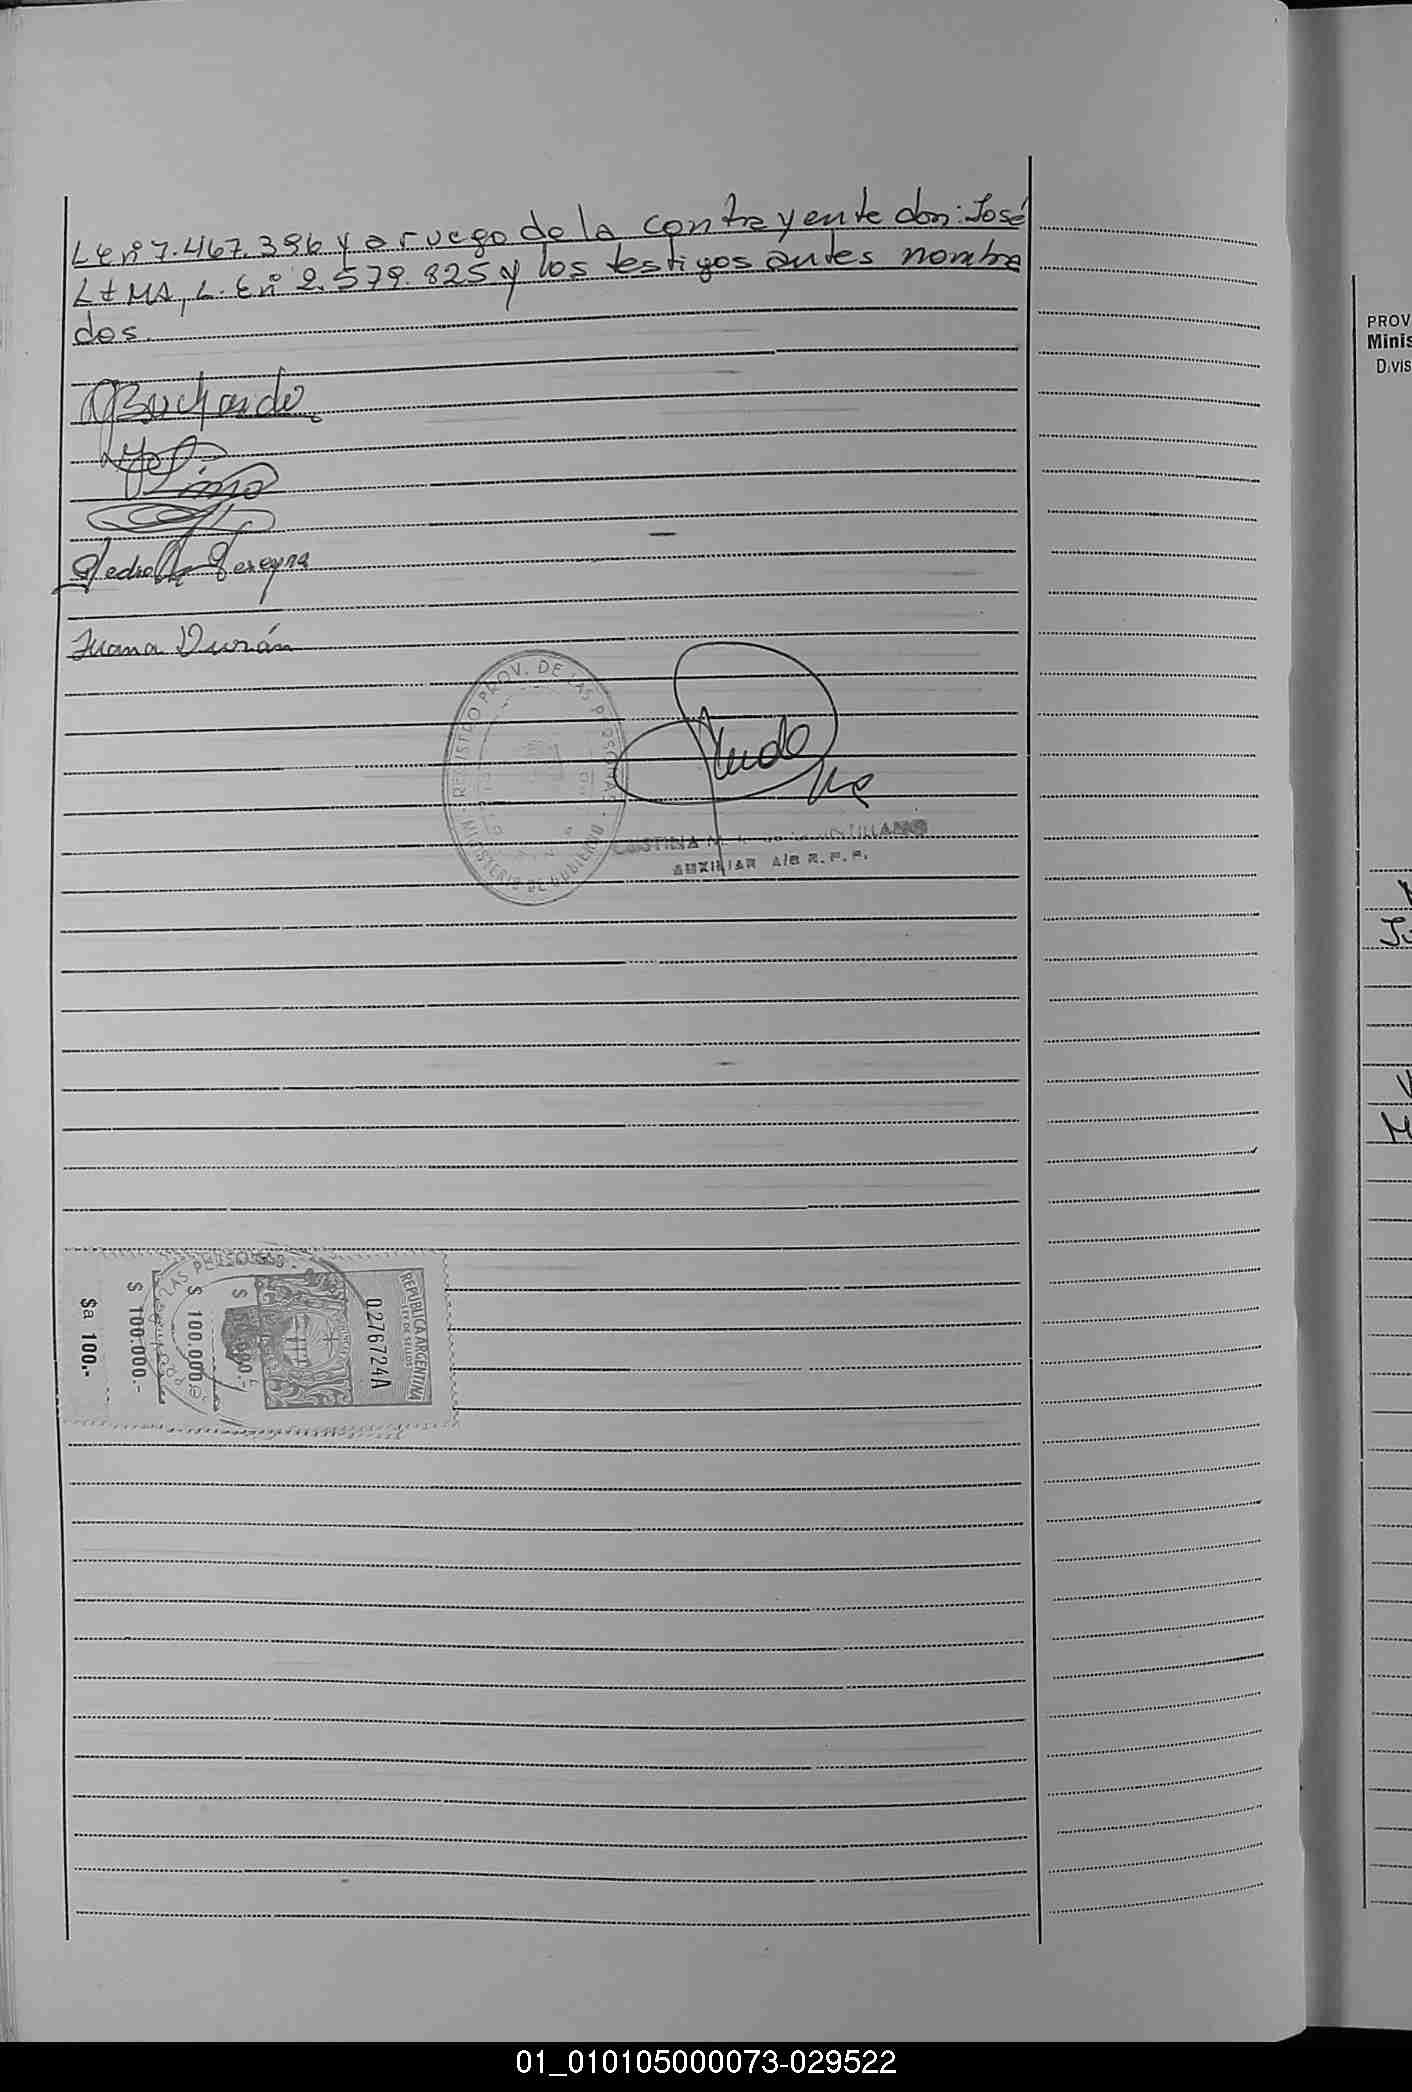 L En° 7.467.396 y a ruego de la contrayente don: José
LIMA, L. En° 2.579.825 y los testigos antes nombra
dos.
Lima
Pedro Pereyra
Juana Durán
REGISTRO PROV. DE LAS PERSONAS
MINISTERIO DE GOBIERNO
AUXILIAR A/C R.P.P.
REPUBLICA ARGENTINA
LEY DE SELLOS
0276724A
$
$ 100.000
$ 100.000.-
$a 100.-
LAS PERSONAS
PROV
Minis
Divis
01_010105000073-029522